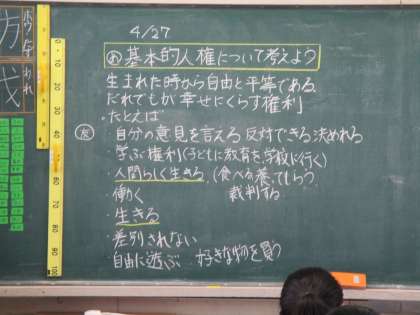 4/27
め 基本的人権について考えよう
生まれた時から自由と平等である
だれでもが幸せにくらす権利
・たとえば
・自分の意見を言える 反対できる 決めれる
学ぶ権利(子どもに教育を 学校に行く)
・人間らしく生きる (食べる 養ってもらう
働く 裁判する
・生きる
・差別されない
・自由に遊ぶ 好きな物を買う